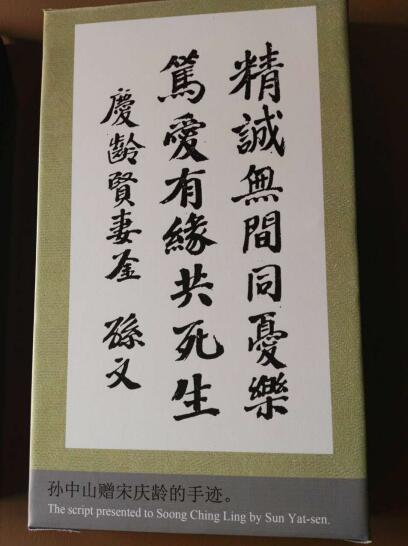 精誠無間同憂樂
篤愛有緣共死生
慶齡賢妻鉴 孫文
孙中山赠宋庆龄的手迹。
The script presented to Soong Ching Ling by Sun Yat-sen.